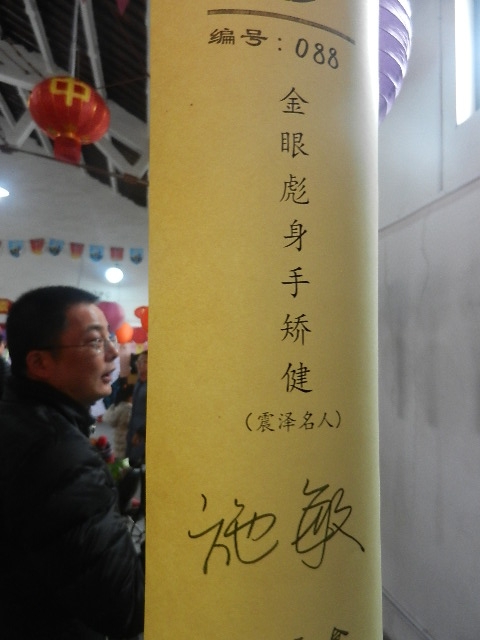 中
编号：088
金眼彪身手矫健
（震泽名人）
施敏